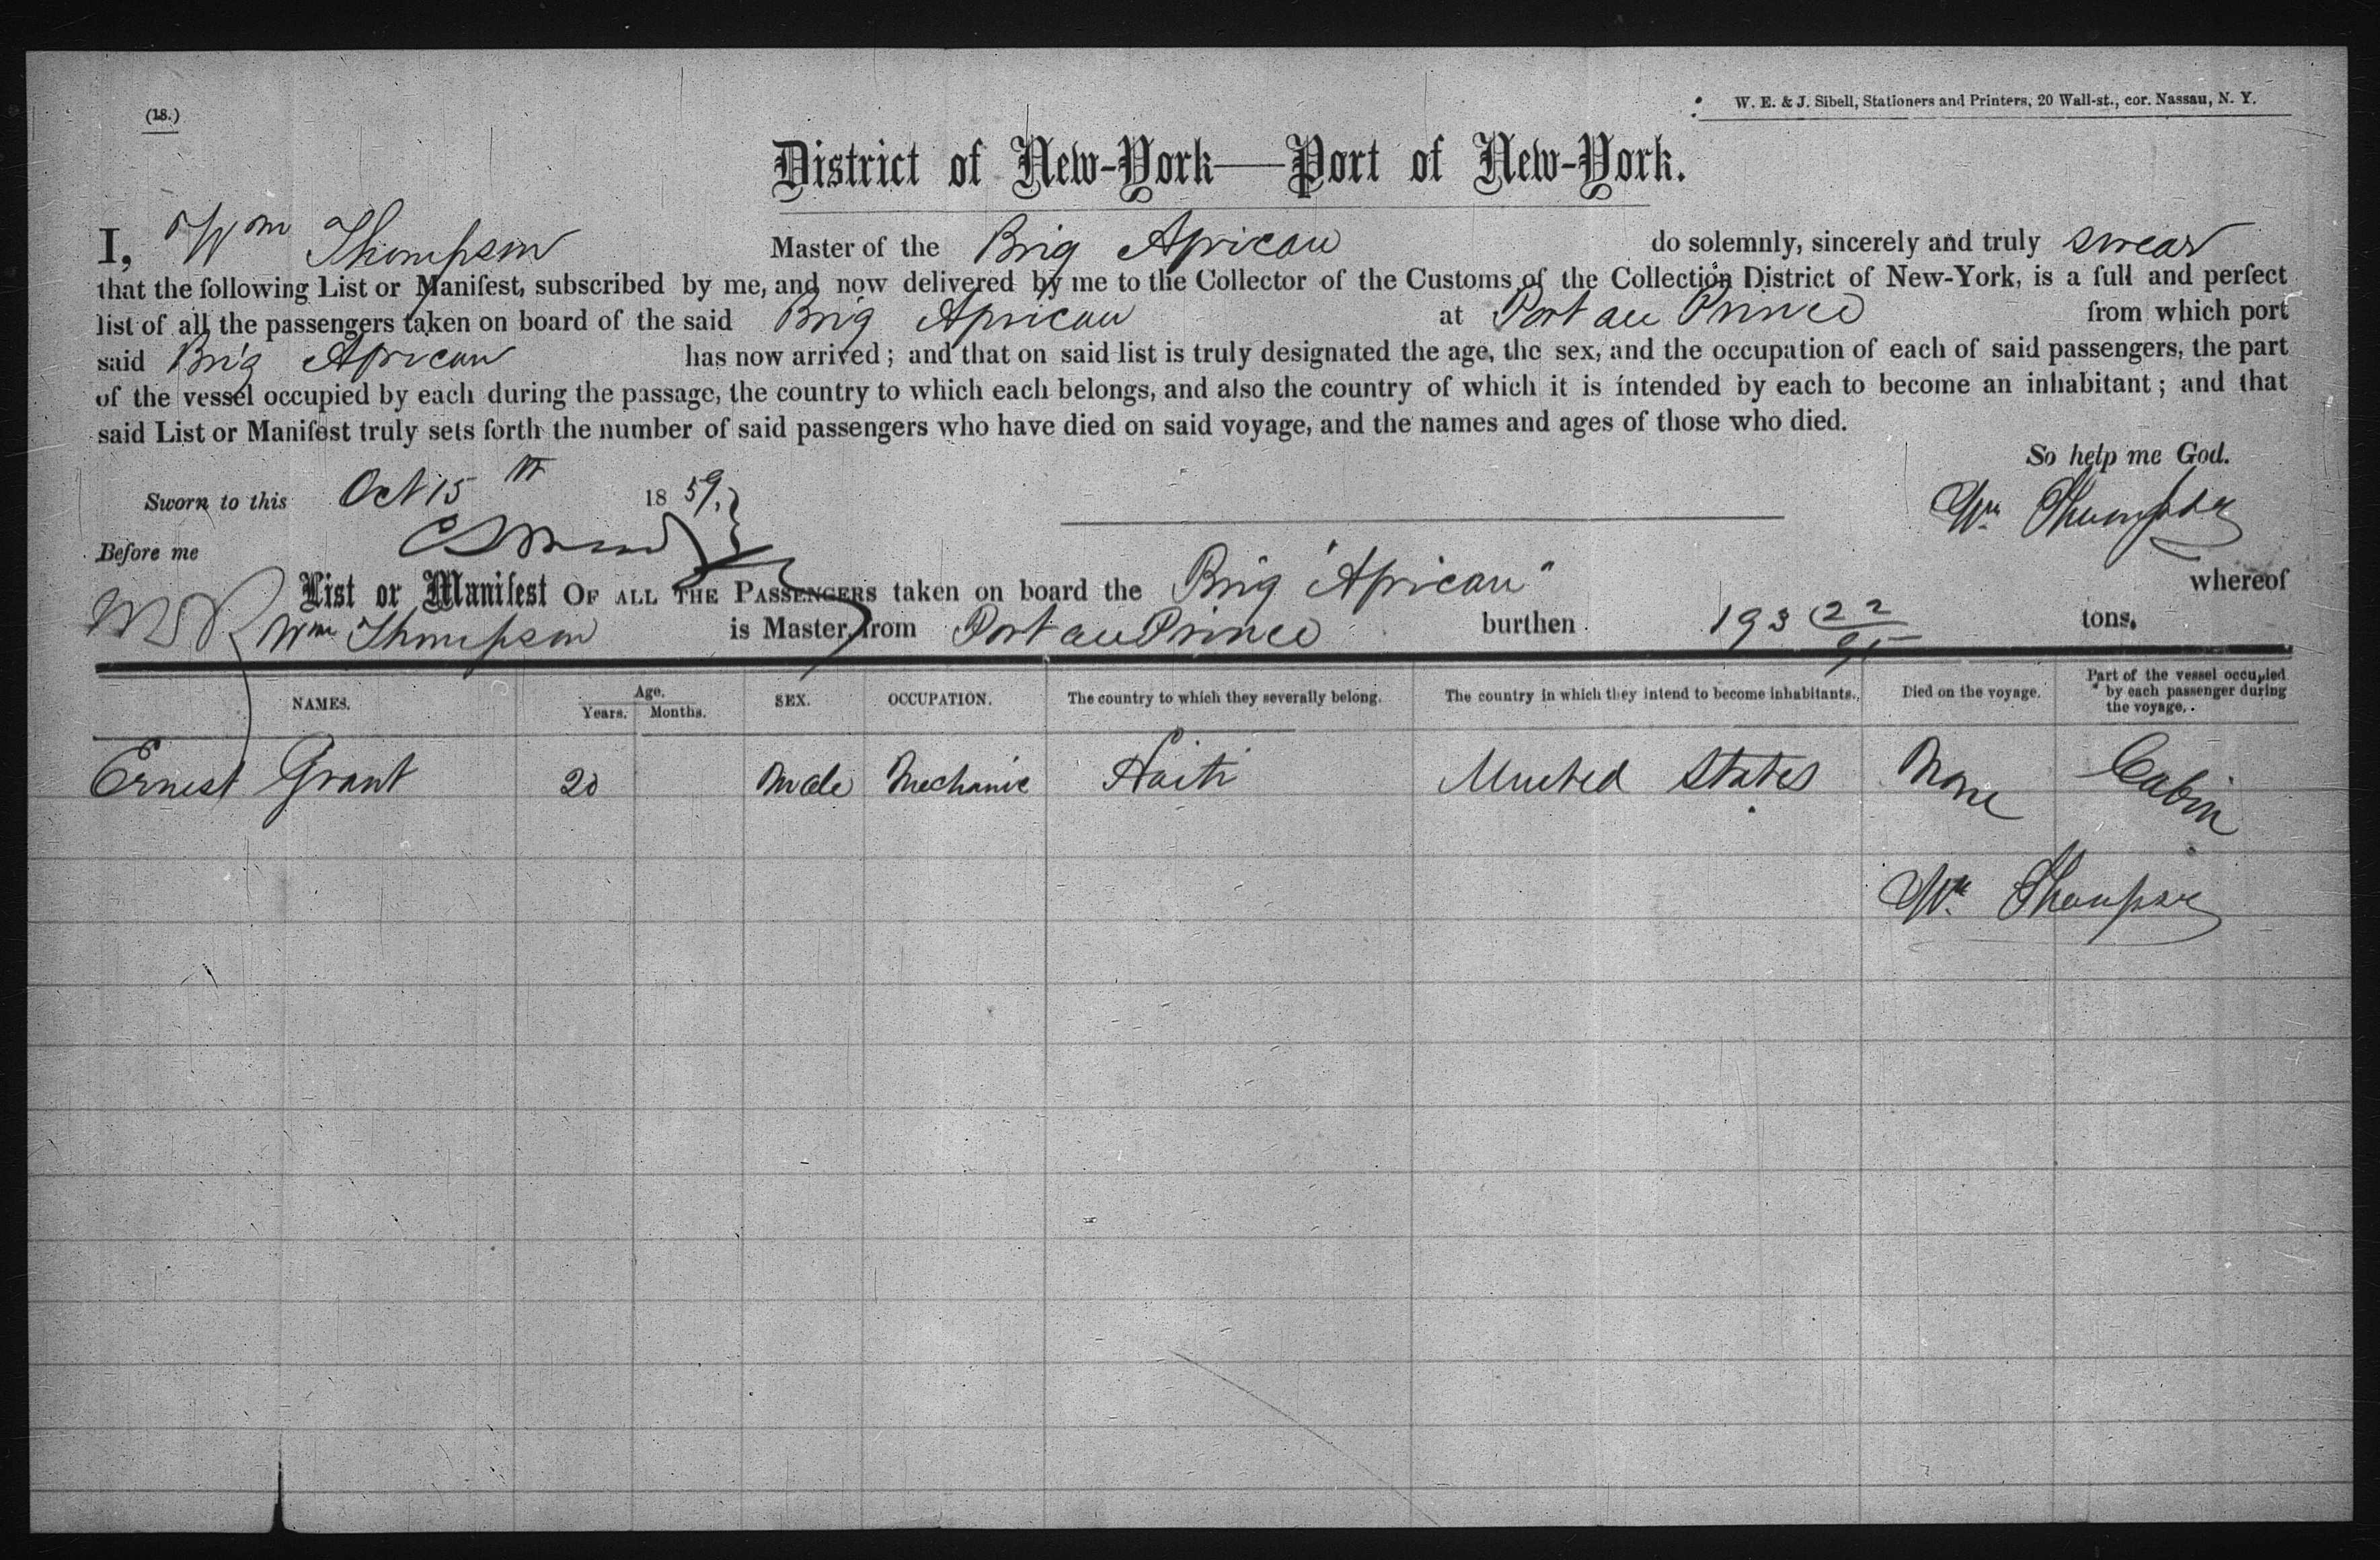 (18.)
W. E. & J. Sibell, Stationers and Printers, 20 Wall-st., cor. Nassau, N. Y.
District of New-York—Port of New-York.
I, Wm Thompson Master of the Brig African do solemnly, sincerely and truly swear
that the following List or Manifest, subscribed by me, and now delivered by me to the Collector of the Customs of the Collection District of New-York, is a full and perfect
list of all the passengers taken on board of the said Brig African at Port au Prince from which port
said Brig African has now arrived; and that on said list is truly designated the age, the sex, and the occupation of each of said passengers, the part
of the vessel occupied by each during the passage, the country to which each belongs, and also the country of which it is intended by each to become an inhabitant; and that
said List or Manifest truly sets forth the number of said passengers who have died on said voyage, and the names and ages of those who died.
So help me God.
Sworn to this Oct 15th 1859.
Wm Thompson
Before me
List or Manifest OF ALL THE PASSENGERS taken on board the Brig "African" whereof
Wm Thompson is Master, from Port au Prince burthen 193 22/95 tons.
NAMES. Age. Years. Months. SEX. OCCUPATION. The country to which they severally belong. The country in which they intend to become inhabitants. Died on the voyage. Part of the vessel occupied by each passenger during the voyage.
Ernest Grant 20 Male Mechanic Haiti United States None Cabin
Wm Thompson